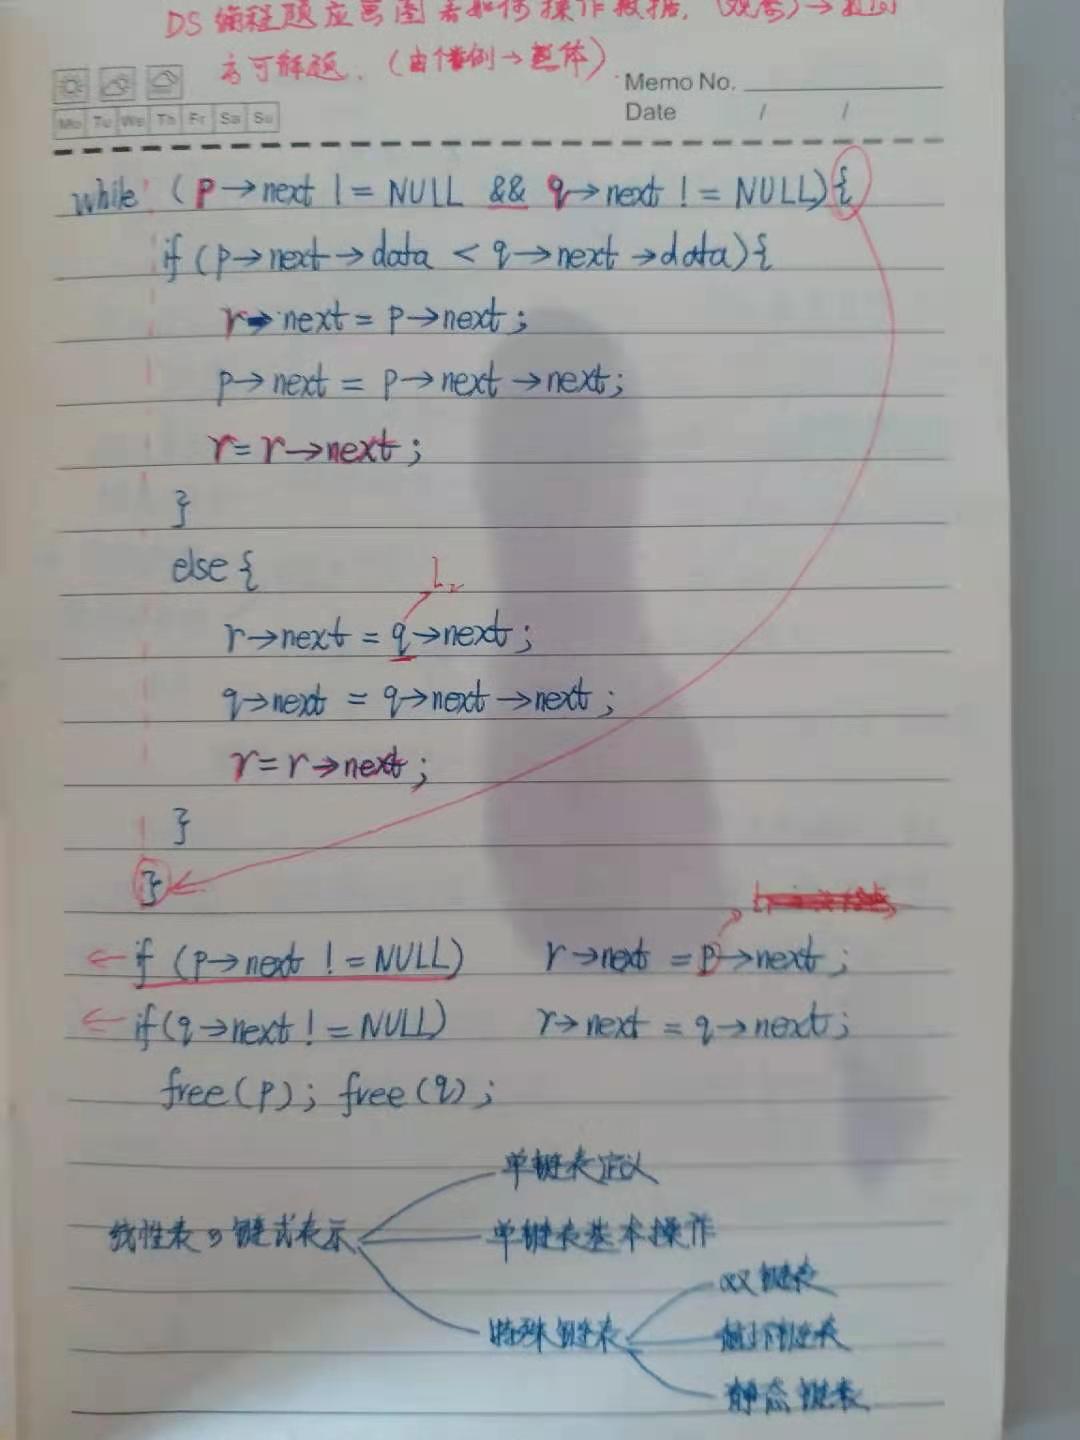 DS 编程题应画图看如何操作数据,
方可解题. (由个例→整体).
Memo No.
Date / /
Mo Tu We Th Fr Sa Su
while (p→next != NULL && q→next != NULL){
if (p→next→data < q→next→data){
r→next = p→next;
p→next = p→next→next;
r=r→next;
}
else {
L₂
r→next = q→next;
q→next = q→next→next;
r=r→next;
}
}
if (p→next != NULL) r→next = p→next;
if(q→next != NULL) r→next = q→next;
free(p); free(q);
单链表定义
线性表的链式表示
单链表基本操作
双链表
特殊链表
循环链表
静态链表